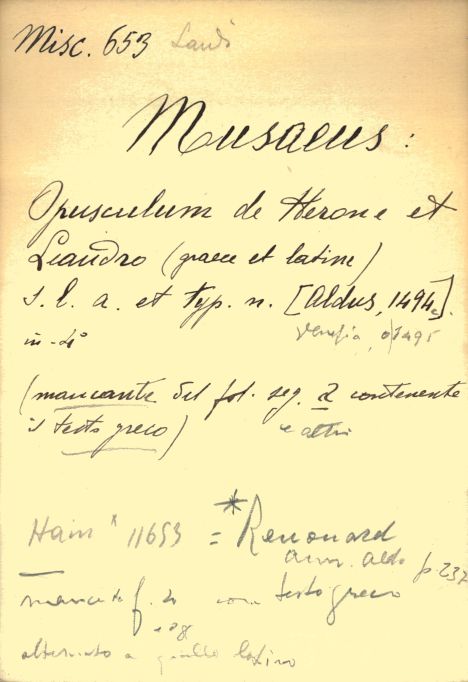 Misc. 653 Landi
Musaeus:
Opusculum de Herone et
Leandro (graece et latine)
s. l. a. et typ. n. [Aldus, 1494].
in-4° Venezia, 1495
(mancante del fol. seg. 2 contenente
il testo greco) e altri
Hain* 11653 = *Renouard
Ann. Aldo p. 237
mancante f. 2 con testo greco
alternato a quello latino